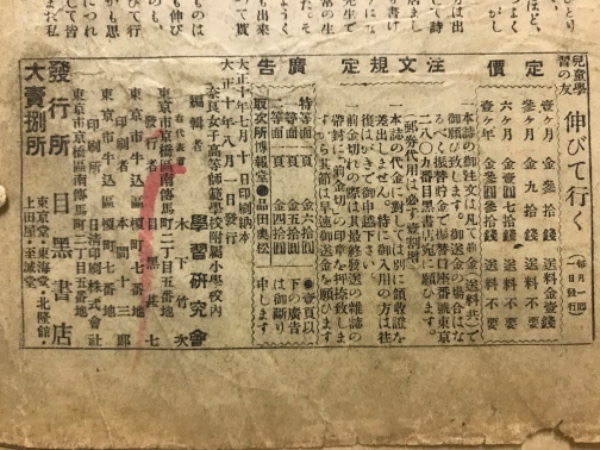 兒童學習の友
伸びて行く
(毎月一回一日發行)
定價
壹ケ月 金參拾錢 送料金壹錢
參ケ月 金九拾錢 送料不要
六ケ月 金壹圓七拾錢 送料不要
壹ケ年 金參圓參拾錢 送料不要
注文規定
一本誌の御注文は凡て前金(送料共)で
御願ひ致します。御送金の場合はな
るべく振替貯金で振替口座番號東京
二八〇九番目黑書店宛に願ひます。
(郵券代用は必ず壹割增)
一本誌の代金に對しては別に領收證を
差出しません。特に御入用の方は往
復はがきで御申越下さい。
前金切れの際は其最終發送の雜誌の
帶封に「前金切」の印章を押捺致しま
すから其節は早速御送金を願ひます
廣告
特等面一頁 金六拾圓
一等面一頁 金五拾圓
二等面一頁 金四拾圓
●壹頁以
下の廣告
は御斷り
申します
取次所博報堂●品田奧松
大正十年七月十日印刷納本
大正十年八月一日發行
奈良女子高等師範學校附屬小學校內
編輯者 學習研究會
右代表者 木下竹次
東京市京橋區南傳馬町二丁目五番地
發行者 目黑甚七
東京市牛込區榎町七番地
印刷者 本間十三郎
東京市牛込區榎町七番地
印刷所 日淸印刷株式會社
東京市京橋區南傳馬町二丁目五番地
發行所 目黑書店
大賣捌所
東京堂・東海堂・北隆館・
上田屋・至誠堂